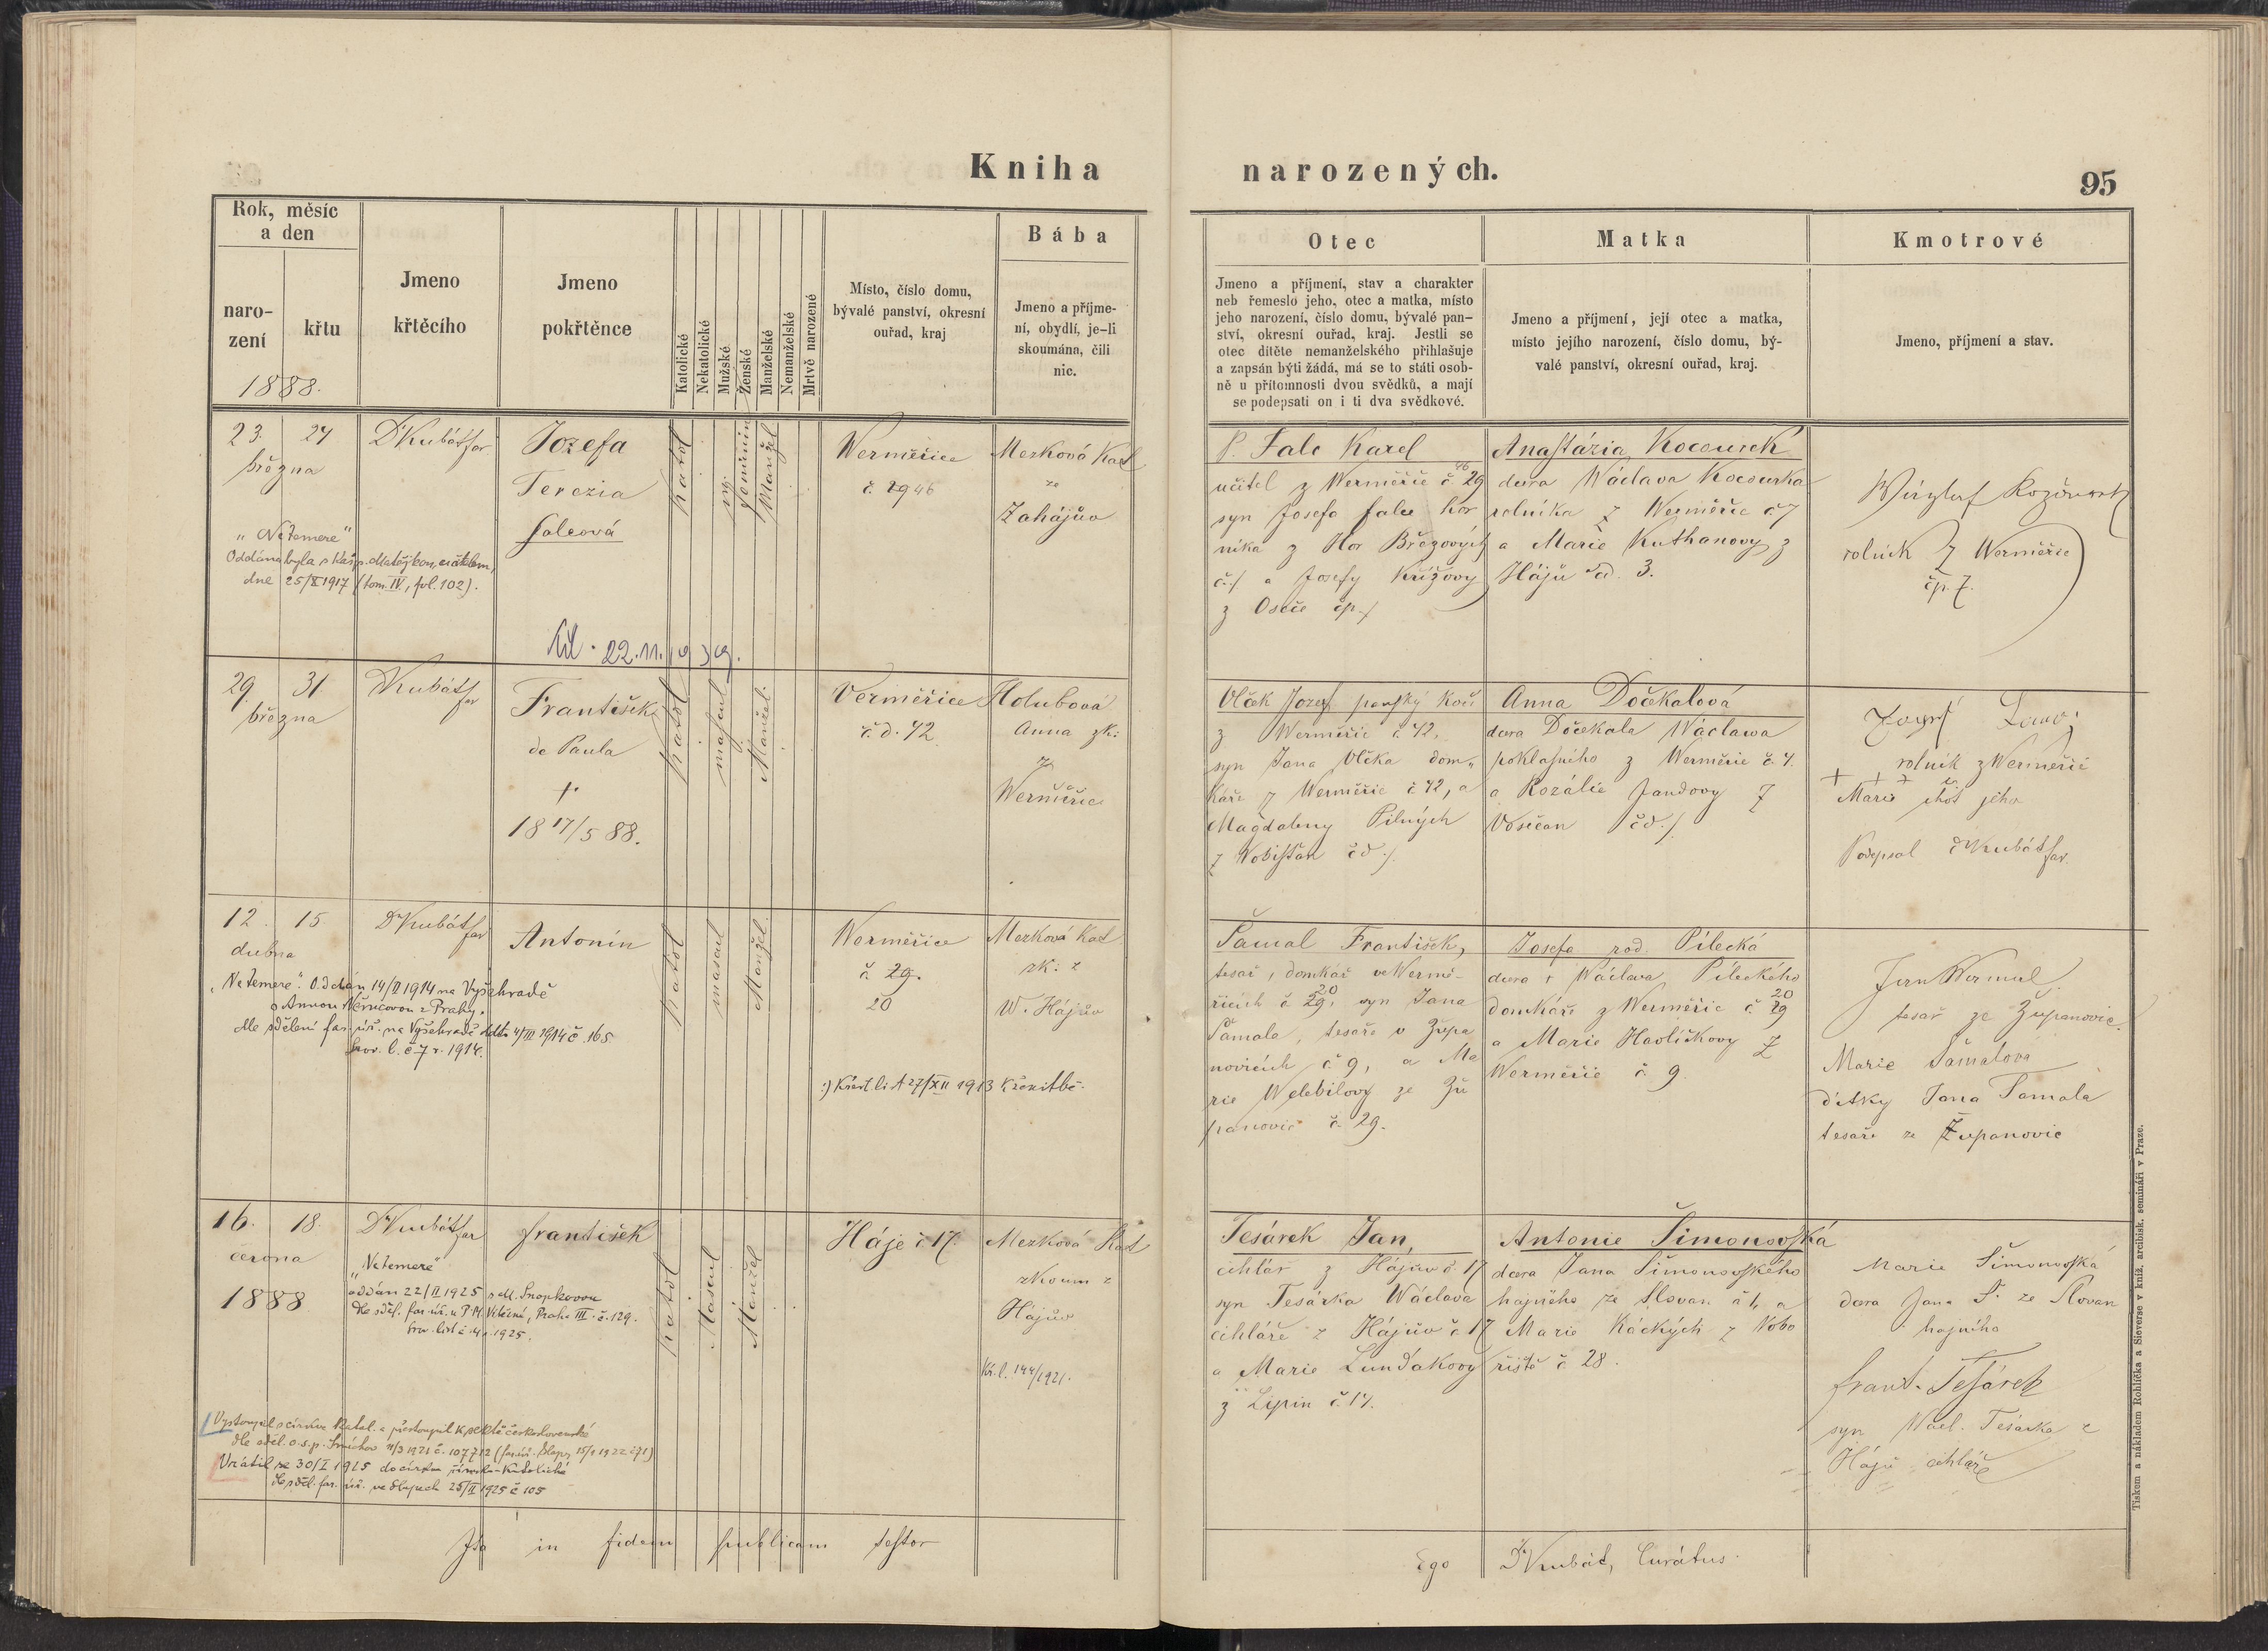 Kniha
narozených.
95
Rok, měsíc
a den
naro-
zení
křtu
1888.
Jmeno
křtěcího
Jmeno
pokřtěnce
Katolické
Nekatolické
Mužské
Ženské
Manželské
Nemanželské
Mrtvě narozené
Místo, číslo domu,
bývalé panství, okresní
ouřad, kraj
Bába
Jmeno a příjme-
ní, obydlí, je-li
skoumána, čili
nic.
Otec
Jmeno a příjmení, stav a charakter
neb řemeslo jeho, otec a matka, místo
jeho narození, číslo domu, bývalé pan-
ství, okresní ouřad, kraj. Jestli se
otec dítěte nemanželského přihlašuje
a zapsán býti žádá, má se to státi osob-
ně u přítomnosti dvou svědků, a mají
se podepsati on i ti dva svědkové.
Matka
Jmeno a příjmení, její otec a matka,
místo jejího narození, číslo domu, bý-
valé panství, okresní ouřad, kraj.
Kmotrové
Jmeno, příjmení a stav.
23. 27
března
"Ne temere"
Oddána byla s Kašp. Matějkou, učitelem,
dne 25/X 1917 (tom. IV, fol. 102).
D Kubát far
Jozefa
Terezia
Falcová
22.11.1939.
katol
Manžel
Werměřice
č. 29 46
Merková Kat
ze
Zahájův
P. Falc Karel
učitel z Werměřic č 29 46
syn Josefa Falce hor
níka z Hor Březových
č./ a Josefy Křížovy
z Oseče čp./
Anastázia Kocourek
dcera Wáclava Kocourka
rolníka z Werměřic č 7
a Marie Kuthanovy z
Hájů čd. 3.
rolník z Werměřic
čp. 7.
29. 31.
března
D Kubát far
František
de Paula
+
18 17/5 88.
katol
mascul
Manžel.
Verměřice
č.d. 42.
Holubová
Anna zk:
z
Werměřic
Vlček Jozef panský kočí
z Werměřic č 42,
syn Jana Vlčka dom„
káře z Werměřic č 42, a
Magdaleny Pilných
z Wobistřan čd./
Anna Dočekalová
dcera Dočekala Wáclawa
poklasného z Werměřic č. 4.
a Rozálie Jandovy z
Vosečan čd./
rolník z Werměřic
+ + +
Marie choť jeho
Podepsal D Kubát far.
12. 15.
dubna
"Ne temere". Oddán 14/II 1914 na Vyšehradě
s Annou Němcovou z Prahy.
dle sdělení far. úř. na Vyšehradě ddto 4/III 1914 č. 165
srov. l. č 7 r. 1914.
D Kubát far
Antonín
katol
mascul
Manžel.
Werměřice
č. 29.
20
:) Křest. list 27/XII 1913 k ženitbě.
Merková Kat
zk: z
W. Hájův
Šamal František,
tesař, domkář ve Wermě-
řicích č 29, 20 syn Jana
Šamala, tesaře v Župa
novicích č 9, a Ma
rie Welebilovy ze Žu
panovic č. 29.
Josefa rod. Pilecká
dcera Wáclava Pileckého
domkáře z Werměřic č 29 20
a Marie Havlíčkovy z
Werměřic č. 9.
Jan Wermul
tesař ze Županovic.
Marie Šamalova
dítky Jana Šamala
tesaře ze Županovic
16. 18.
června
1888
D Kubát far
František
"Ne temere"
oddán 22/II 1925 s M. Snopkovou
dle sděl. far. úř. u P. M. Vítězné, Praha III. č. 129.
srov. list č 4 r. 1925.
Vystoupil z církve katol. a přestoupil k sektě československé
dle sděl. o.s.p. Smíchov 11/3 1921 č. 107712 (far. úř. Slapy 15/1 1922 č 71)
Vrátil se 30/I 1925 do církve římsko-katolické
dle sděl. far. úř. ve Slapech 25/II 1925 č 105
katol
Mascul
Manžel
Háje č 17.
Merková Kat
zkoum z
Hájův
Kř. l. 144/1921.
Tesárek Jan,
cihlář z Hájův č 17
syn Tesárka Wáclava
cihláře z Hájův č 17
a Marie Lunďákovy
z Lipin č. 17.
Antonie Šimonovská
dcera Jana Šimonovského
hajného ze Slovan č 1, a
Marie Káckých z Nobo
řiště č 28.
Marie Šimonovská
dcera Jana Š. ze Slovan
hajného
Frant. Tesárek
syn Wácl. Tesárka z
Hájů cihláře
Ita in fidem publicam testor
Ego D Kubát, Curátus.
Tiskem a nákladem Rohlíčka a Sieverse v kníž. arcibisk. semináři v Praze.